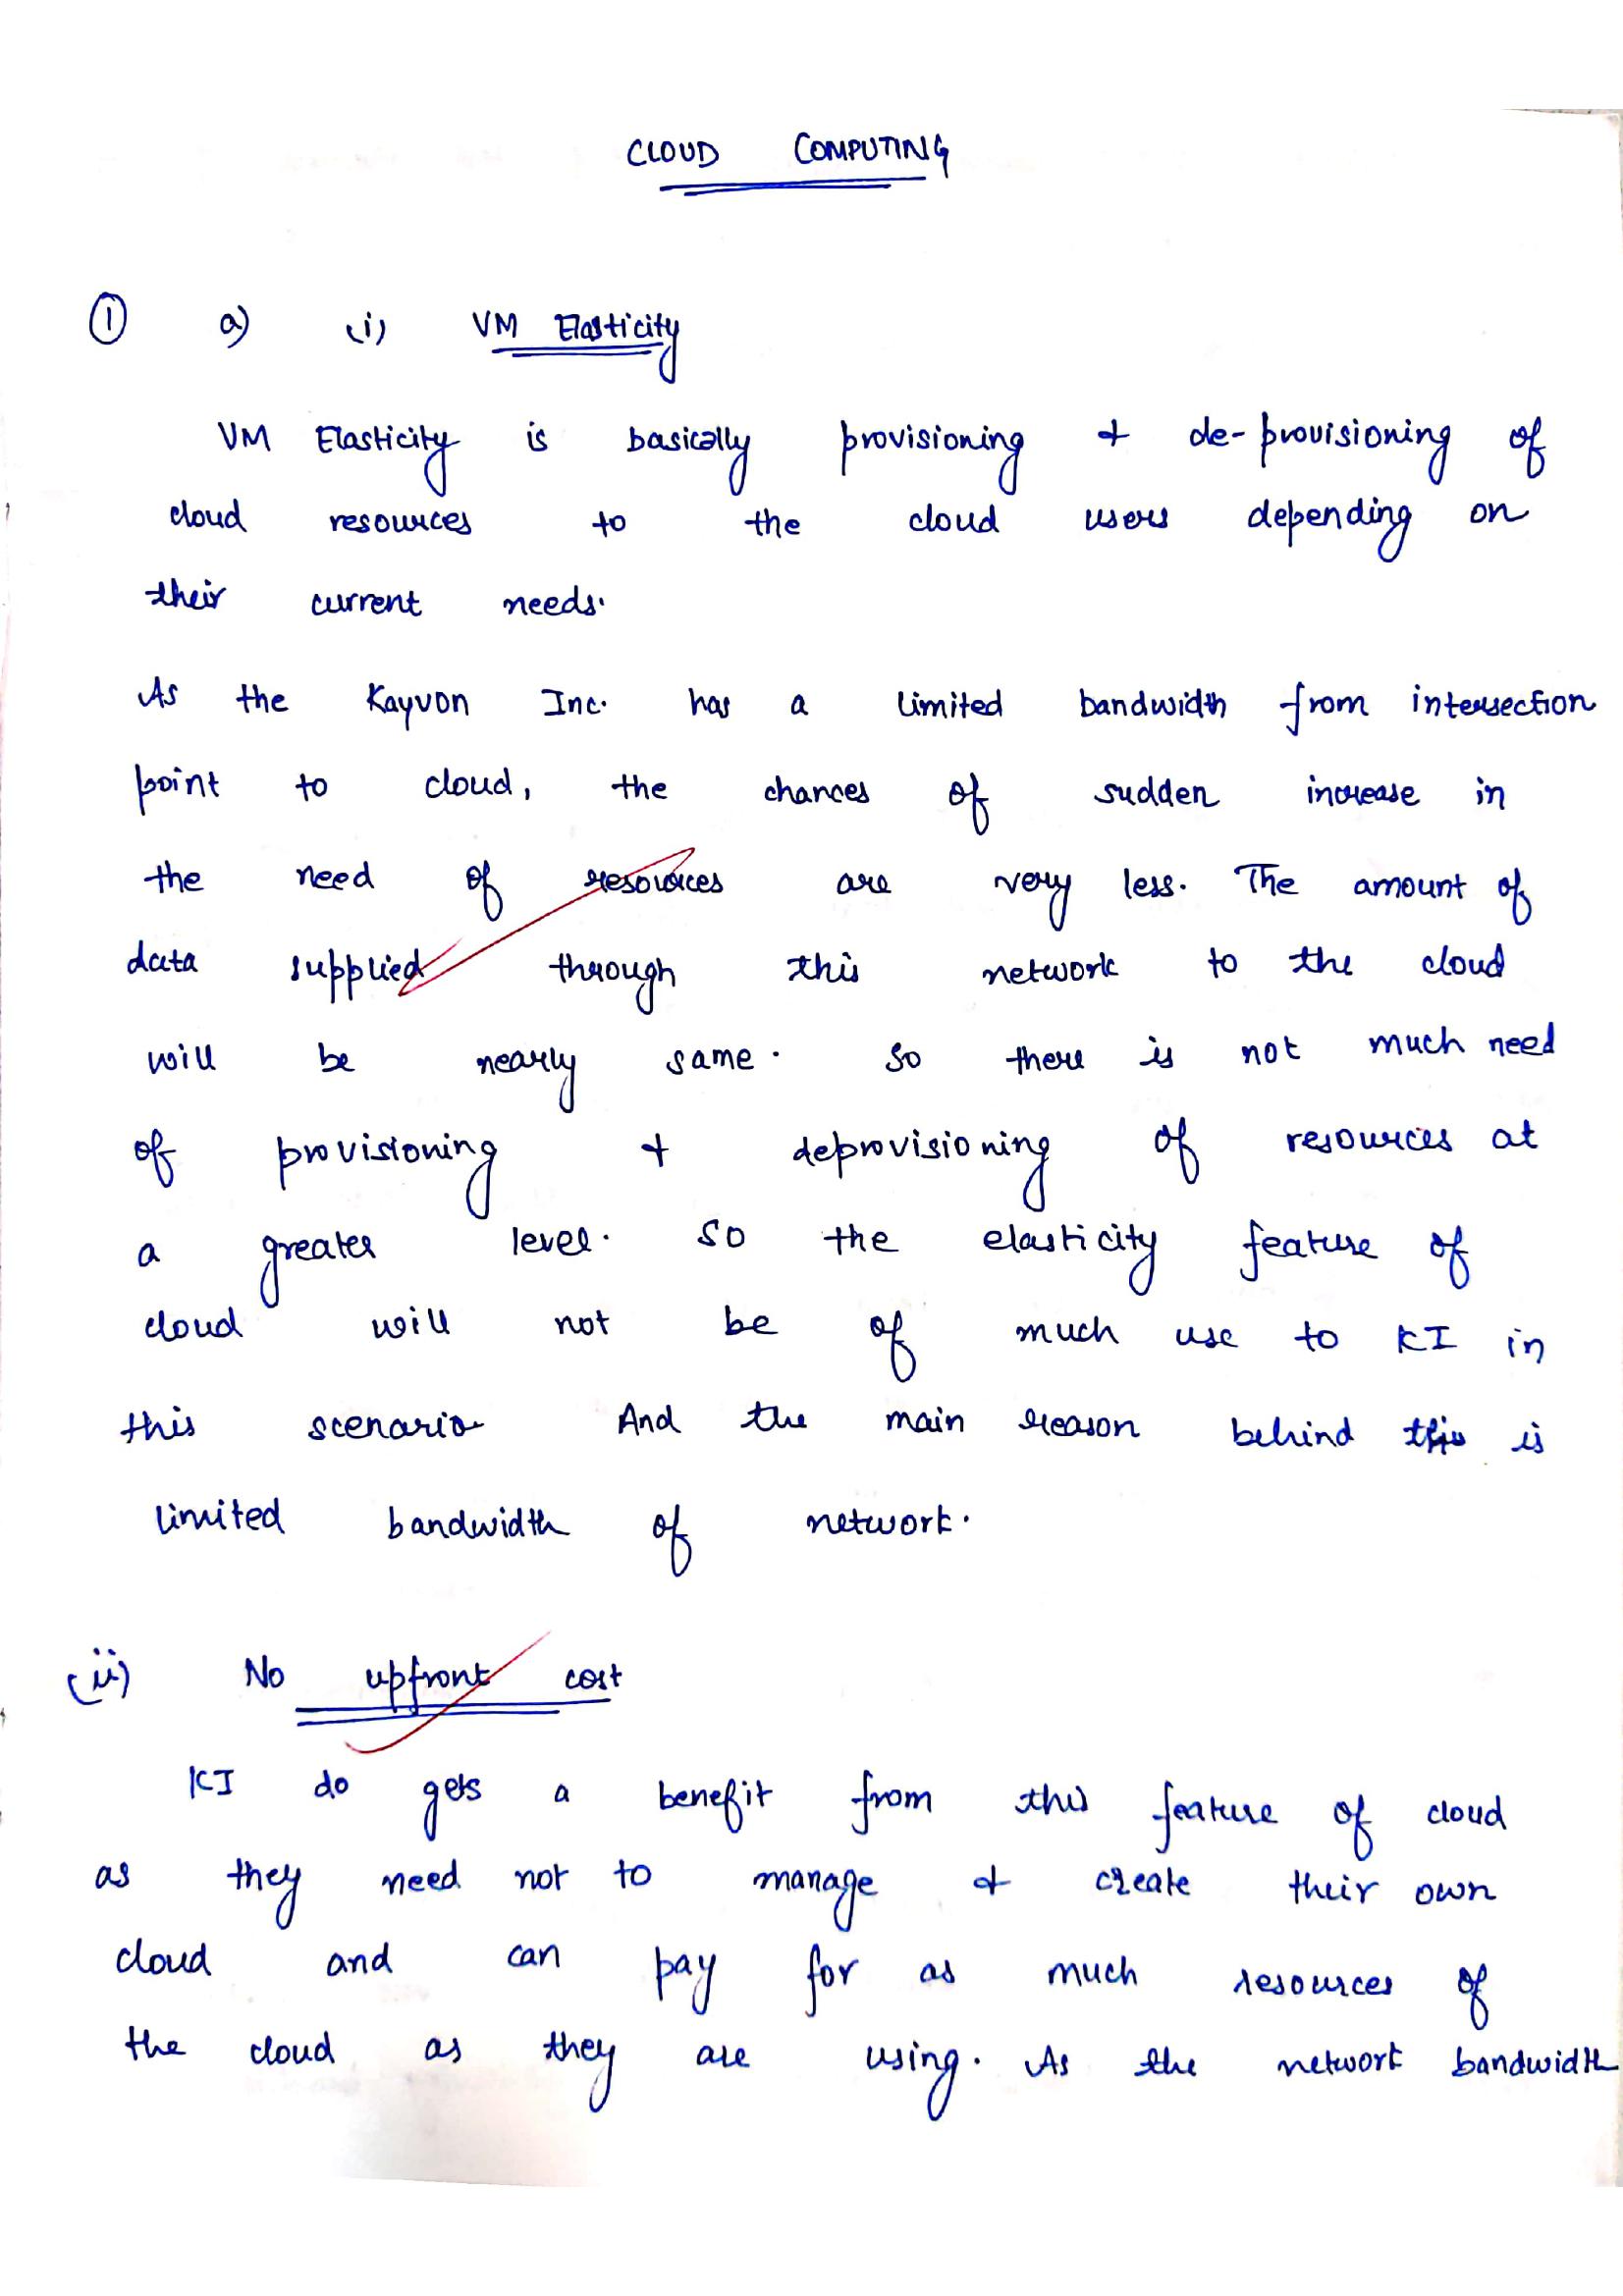 CLOUD COMPUTING
① a) (i) VM Elasticity
VM Elasticity is basically provisioning & de-provisioning of
cloud resources to the cloud users depending on
their current needs.
As the Kayvon Inc. has a limited bandwidth from intersection
point to cloud, the chances of sudden increase in
the need of resources are very less. The amount of
data supplied through this network to the cloud
will be nearly same. So there is not much need
of provisioning & deprovisioning of resources at
a greater level. So the elasticity feature of
cloud will not be of much use to KI in
this scenario And the main reason behind this is
limited bandwidth of network.
(ii) No upfront cost
KI do gets a benefit from this feature of cloud
as they need not to manage & create their own
cloud and can pay for as much resources of
the cloud as they are using. As the network bandwidth